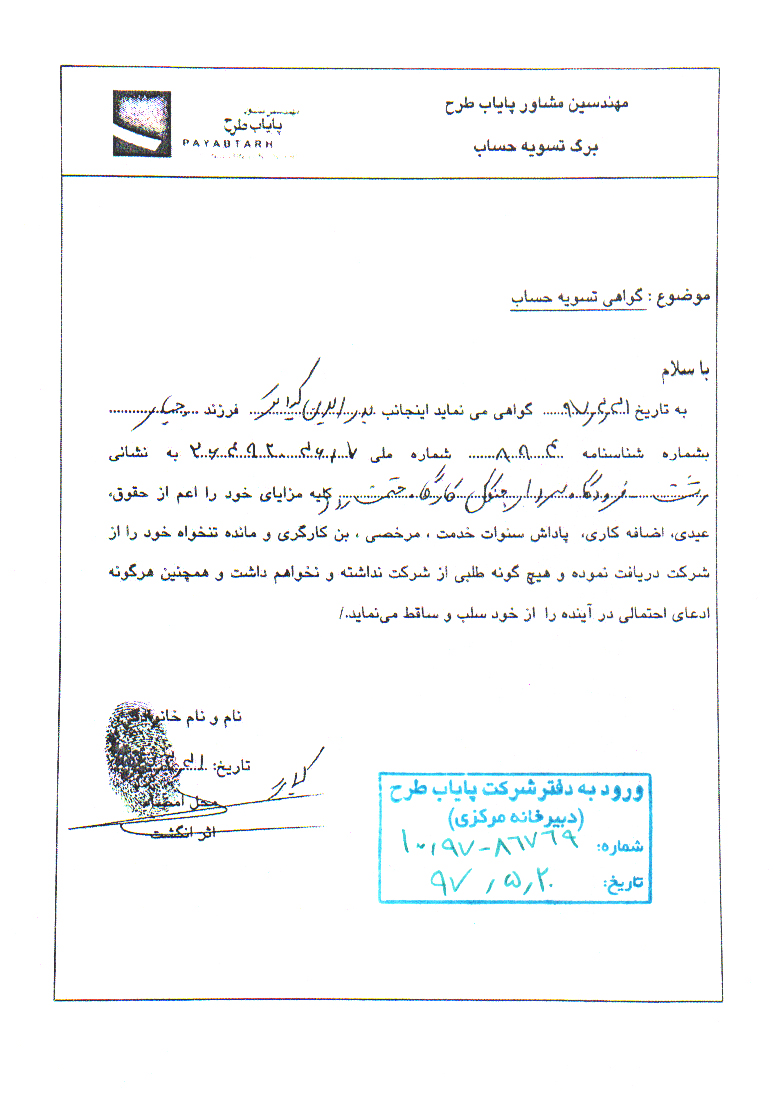 مهندسین مشاور پایاب طرح
برگ تسویه حساب
پایاب طرح
PAYABTARH
موضوع : گواهی تسویه حساب
با سلام
به تاریخ گواهی می نماید اینجانب بدرالدین فرزند
بشماره شناسنامه ۸۹۴ شماره ملی به نشانی
رشت - فرودگاه سردار جنگل کارگاه کلیه مزایای خود را اعم از حقوق،
عیدی، اضافه کاری، پاداش سنوات خدمت ، مرخصی ، بن کارگری و مانده تنخواه خود را از
شرکت دریافت نموده و هیچ گونه طلبی از شرکت نداشته و نخواهم داشت و همچنین هرگونه
ادعای احتمالی در آینده را از خود سلب و ساقط می‌نماید./
نام و نام خانوادگی
تاریخ:
محل امضاء
اثر انگشت
ورود به دفتر شرکت پایاب طرح
(دبیرخانه مرکزی)
شماره: ۱۰،۹۷-۸۶۷۶۹
تاریخ: ۹۷،۵،۲۰